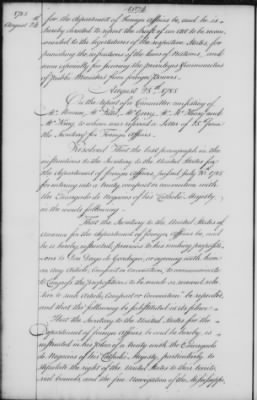 1785
August 24th
for the department of foreign Affairs be, and he is
hereby directed to report the draft of an Act to be recom-
mended to the legislatures of the respective States, for
punishing the infractions of the laws of Nations, and
more especially for securing the privileges & immunities
of public Ministers from foreign Powers.
August 25th 1785
On the report of a Committee consisting of
Mr. Monroe, Mr. Pettit, Mr. Gerry, Mr. McHenry and
Mr. King, to whom was referred a Letter of
the Secretary for Foreign Affairs.
Resolved That the last paragraph in the
instructions to the Secretary to the United States for
the department of foreign Affairs, passed July 20th 1785
for entering into a treaty, compact or convention with
the Encargado de Negocios of his Catholic Majesty,
in the words following
That the Secretary to the United States of
America for the department of foreign Affairs be, and
he is hereby instructed, previous to his making proposi-
ons to Don Diego de Gardoqui, or agreeing with him
on any Article, Compact or Convention, to communicate
to Congress the propositions to be made or received rela-
tive to such Article, Compact or Convention be repealed,
and that the following be substituted in its place.
That the Secretary to the United States for the
Department of foreign Affairs be and he hereby is
instructed in his plan of a treaty with the Encargado
de Negocios of his Catholic Majesty, particularly to
stipulate the right of the United States to their territo-
rial bounds, and the free Navigation of the Mississippi,